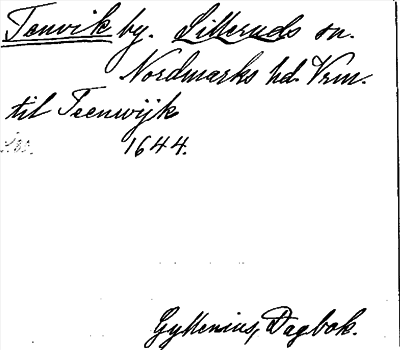 Tenvik by. Silleruds sn.
Nordmarks hd. Vrm.
til Teenwijk
1644.
Gyllenius, Dagbok.